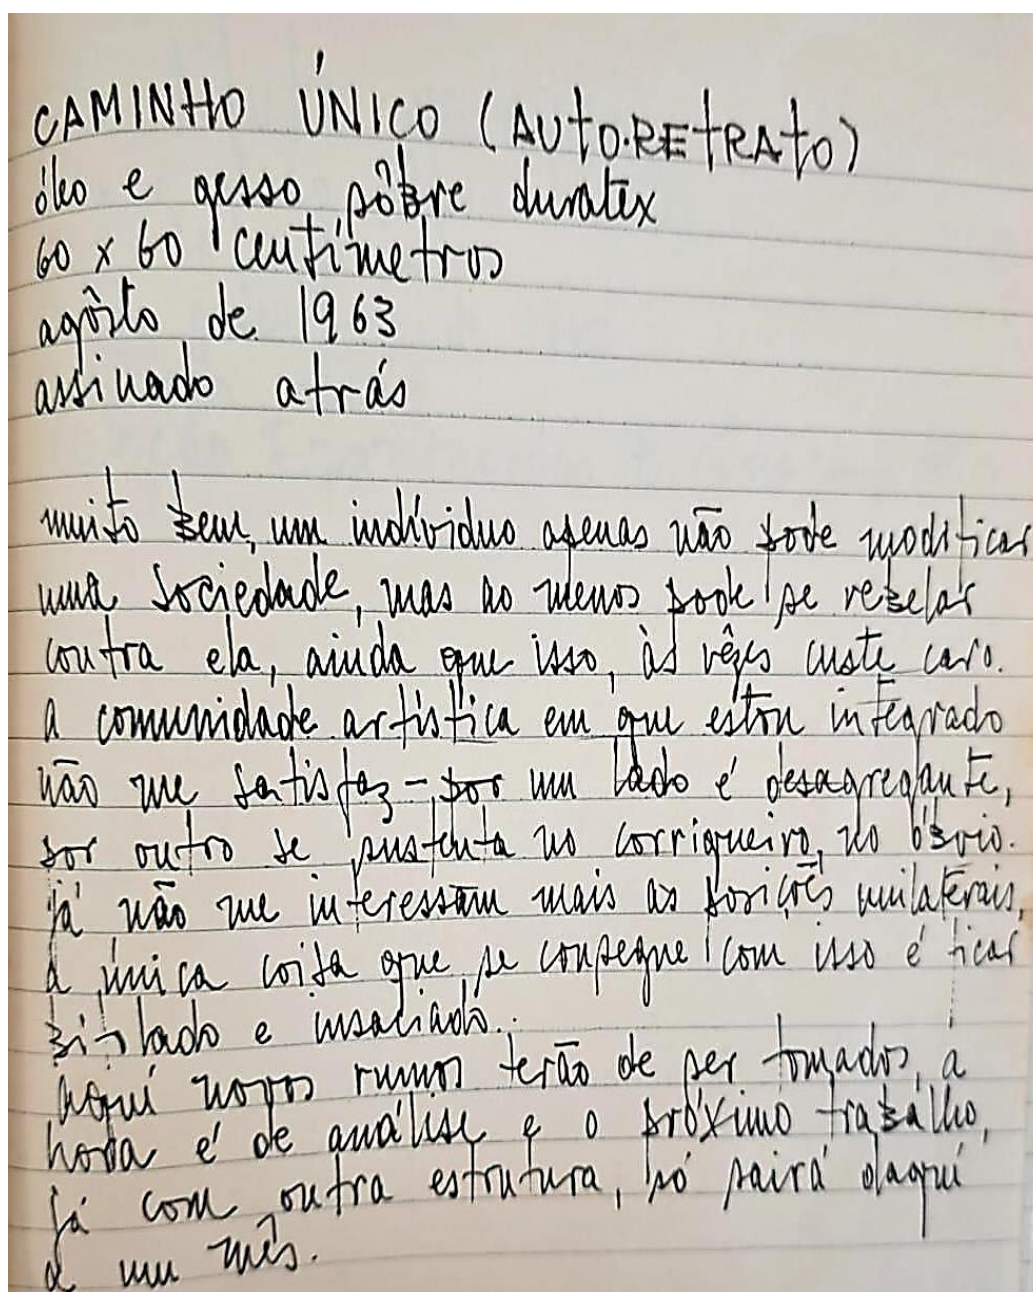 CAMINHO ÚNICO (AUTO-RETRATO)
óleo e gesso sôbre duratex
60 x 60 centímetros
agôsto de 1963
assinado atrás
muito bem, um indivíduo apenas não pode modificar
uma sociedade, mas ao menos pode se rebelar
contra ela, ainda que isso, às vêzes custe caro.
a comunidade artística em que estou integrado
não me satisfaz - por um lado é desagregante,
por outro se sustenta no corriqueiro, no óbvio.
já não me interessam mais as posições unilaterais,
a única coisa que se consegue com isso é ficar
bitolado e insaciado.
aqui novos rumos terão de ser tomados, a
hora é de análise e o próximo trabalho,
já com outra estrutura, só sairá daquí
a um mês.